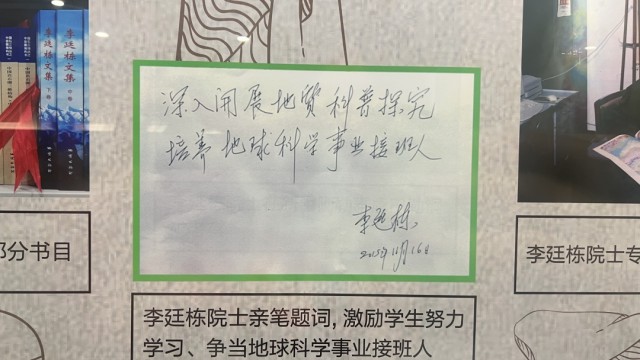 李廷栋文集 下卷
李廷栋文集 中卷
深入开展地质科普探究
培养地球科学事业接班人
李廷栋
2015年11月16日
部分书目
李廷栋院士亲笔题词, 激励学生努力
学习、争当地球科学事业接班人
李廷栋院士专